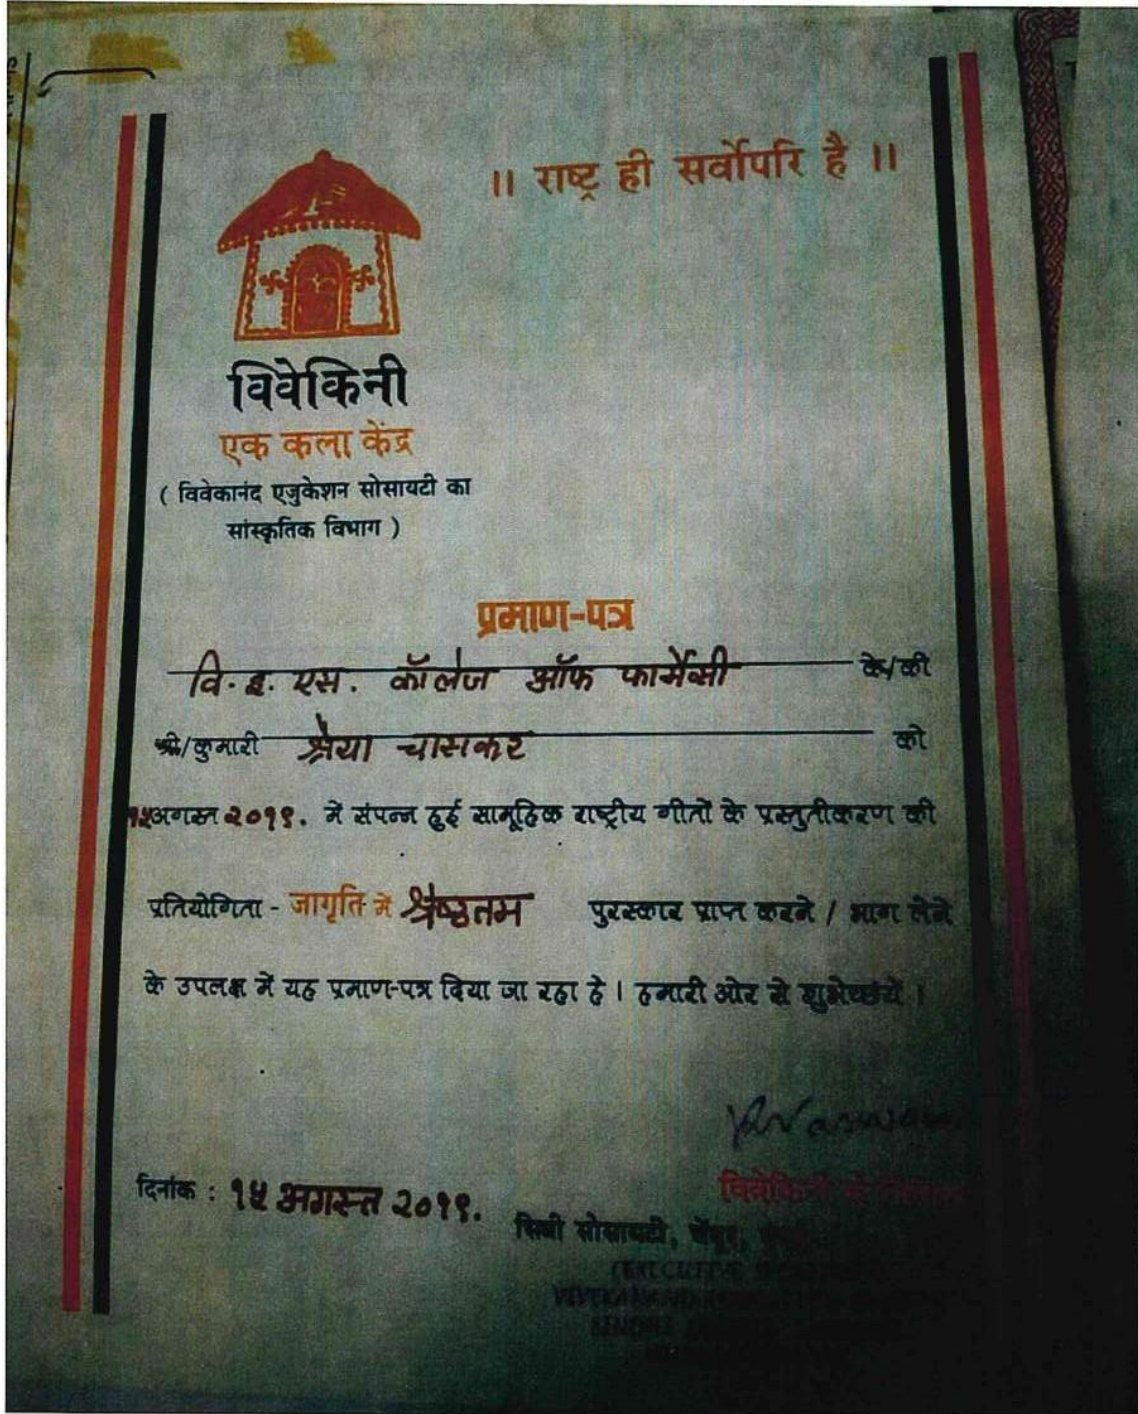 ॥ राष्ट्र ही सर्वोपरि है ॥
विवेकिनी
एक कला केंद्र
( विवेकानंद एजुकेशन सोसायटी का
सांस्कृतिक विभाग )
प्रमाण-पत्र
वि. इ. एस. कॉलेज ऑफ फार्मेसी के/की
श्री/कुमारी श्रेया चासकर को
१५अगस्त २०१९. में संपन्न हुई सामूहिक राष्ट्रीय गीतों के प्रस्तुतीकरण की
प्रतियोगिता - जागृति में श्रेष्ठतम पुरस्कार प्राप्त करने / भाग लेने
के उपलक्ष में यह प्रमाण-पत्र दिया जा रहा हे । हमारी ओर से शुभेच्छायें ।
दिनांक : १५ अगस्त २०१९.
विवेकिनी
सिंधी सोसायटी, चेंबूर,